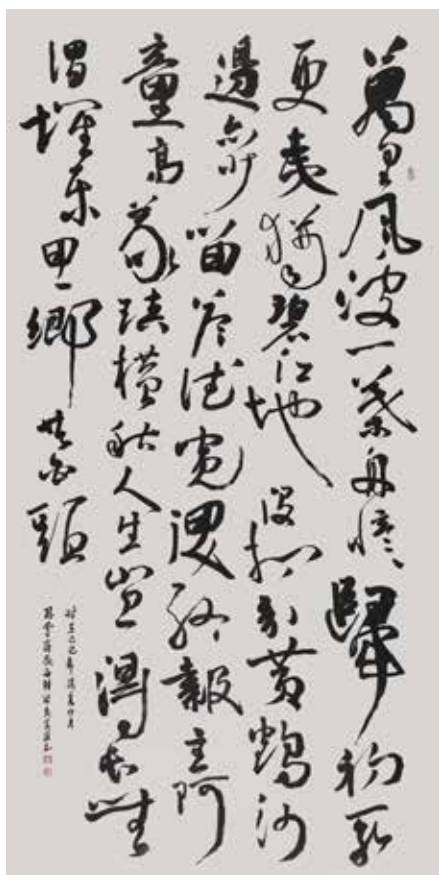 萬里風波一葉舟憶歸初罷
更夷猶碧江地沒相引黃鶴沙
邊亦少留益德冤魂終報主阿
童高義鎮橫秋人生豈得長無
謂懷思鄉共白頭